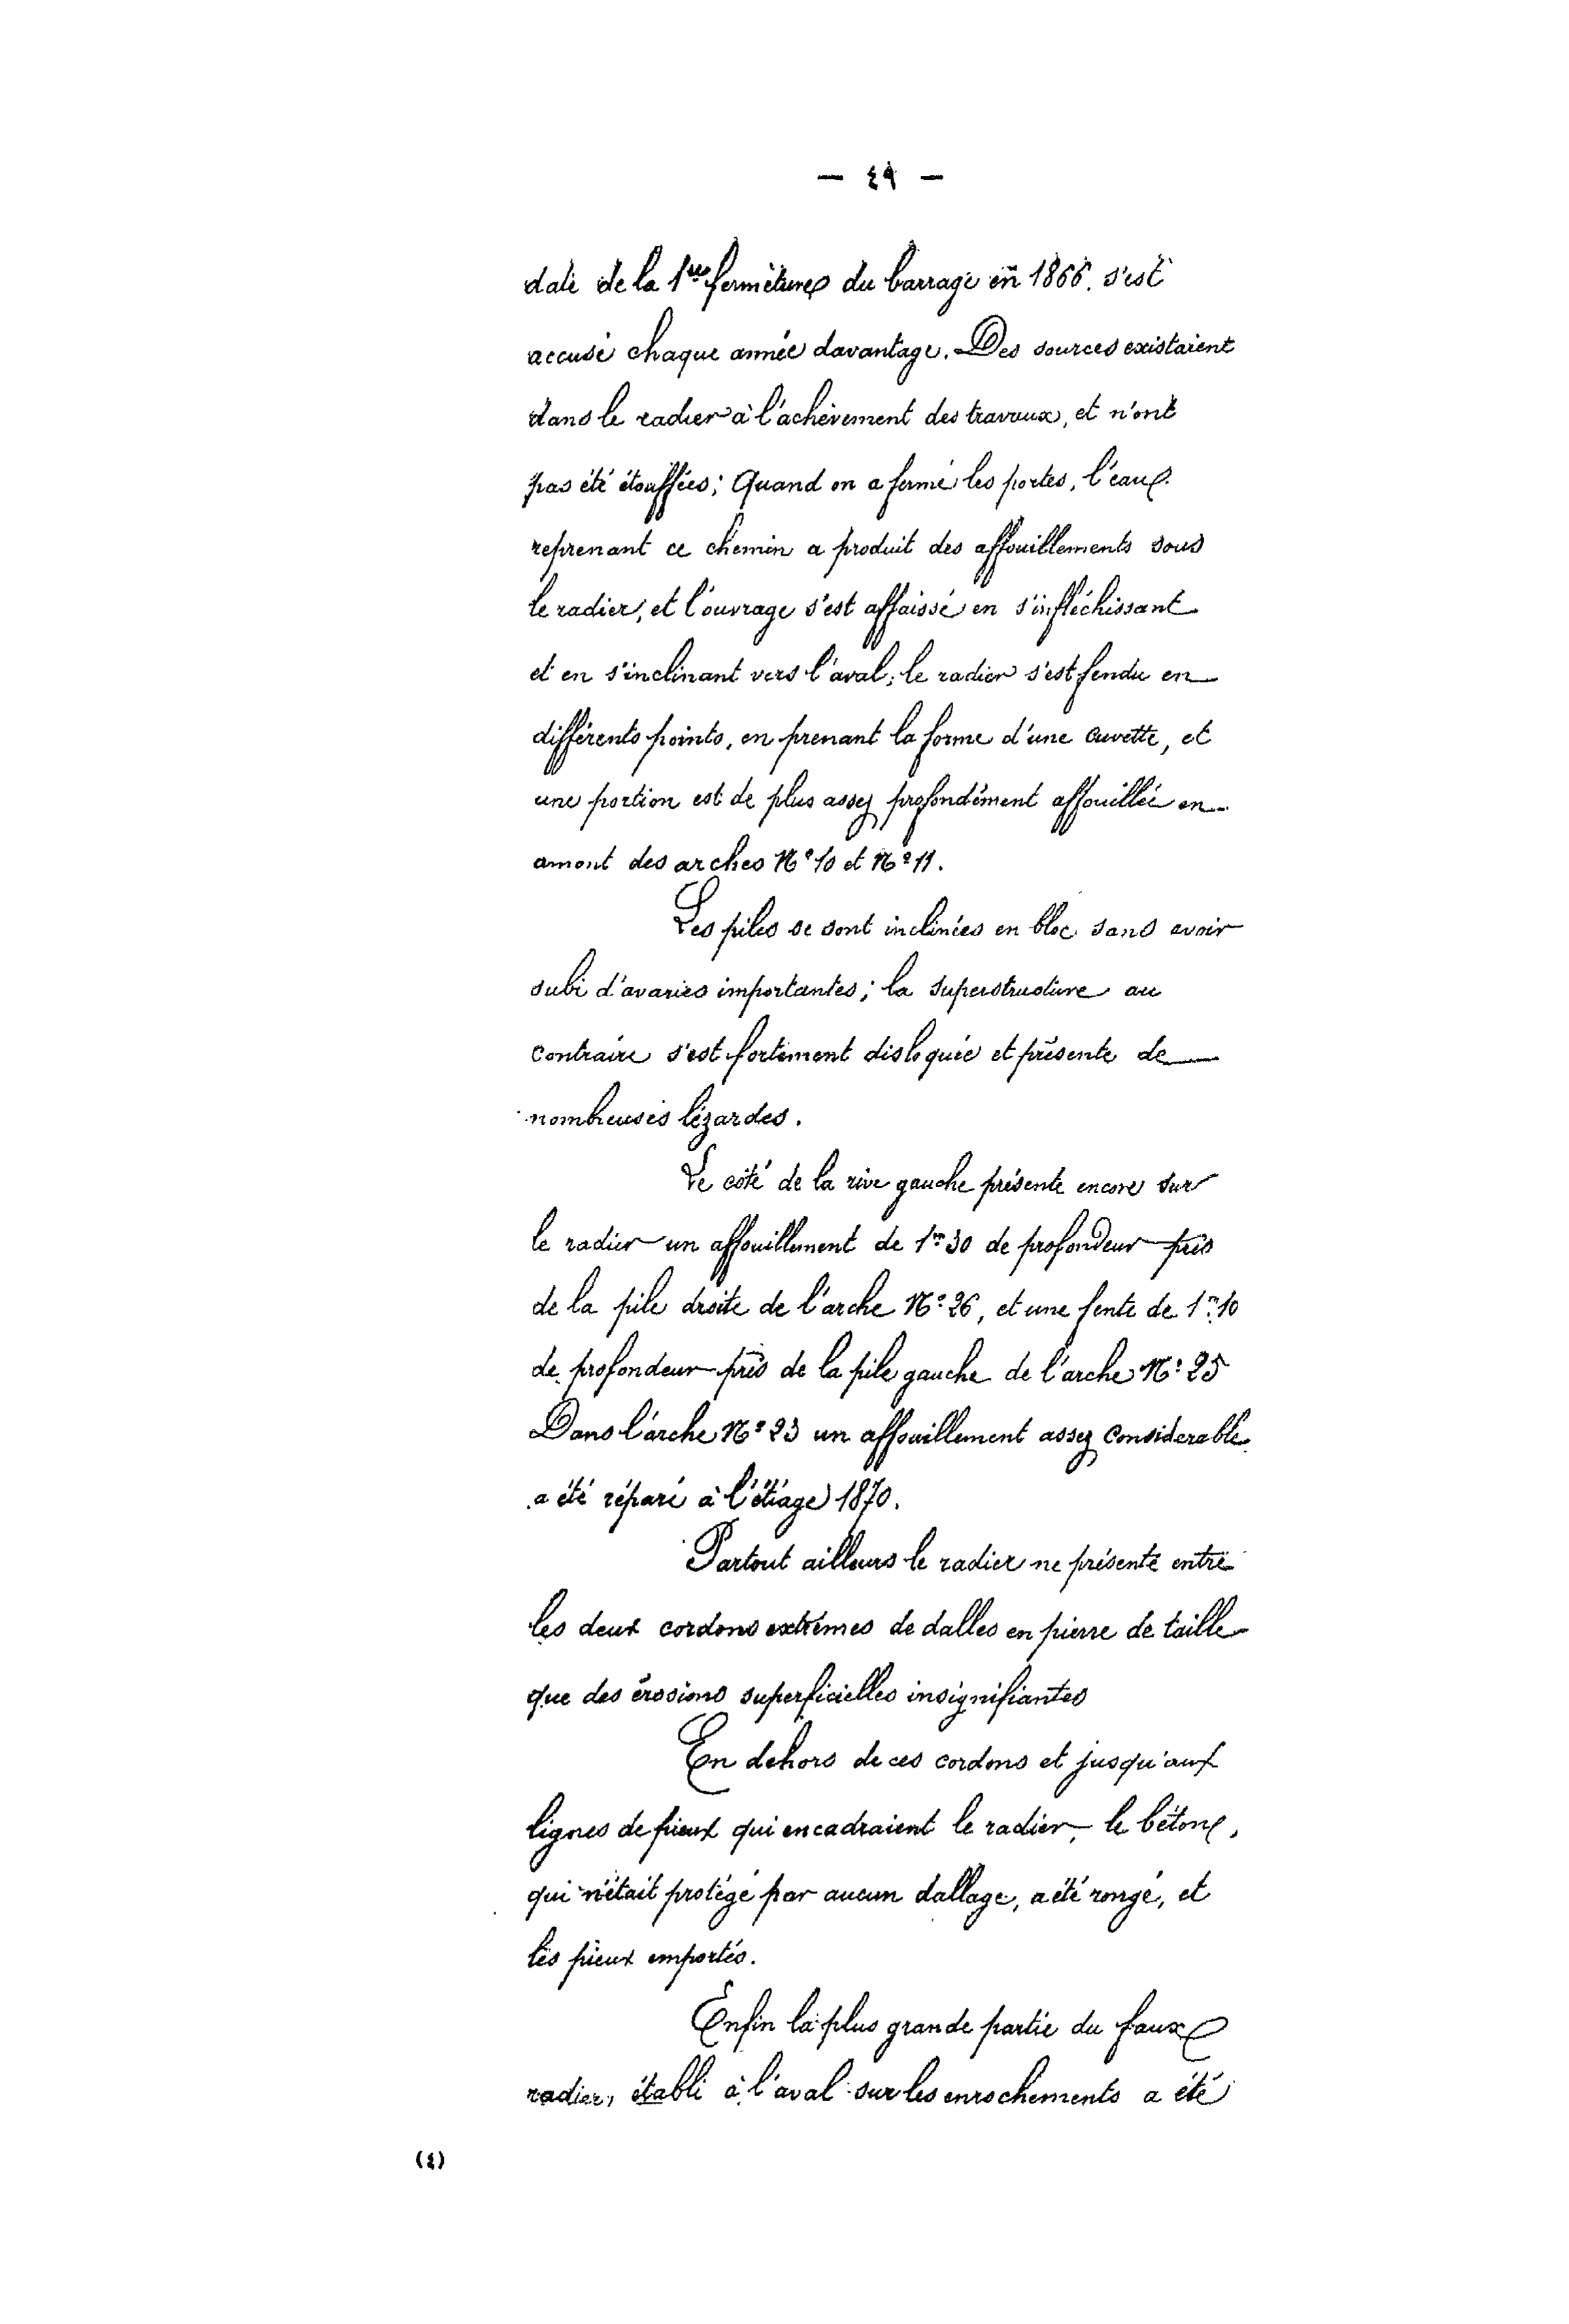 — ٤٩ —
date de la 1re fermeture du barrage en 1866. s'est
accusé chaque année davantage. Des sources existaient
dans le radier à l'achèvement des travaux, et n'ont
pas été étouffées; Quand on a fermé les portes, l'eau
reprenant ce chemin a produit des affouillements sous
le radier, et l'ouvrage s'est affaissé en s'infléchissant
et en s'inclinant vers l'aval; le radier s'est fendu en
différents points, en prenant la forme d'une cuvette, et
une portion est de plus assez profondément affouillée en
amont des arches No 10 et No 11.
Les piles se sont inclinées en bloc sans avoir
subi d'avaries importantes; la superstructure au
contraire s'est fortement disloquée et présente de
nombreuses lézardes.
Le côté de la rive gauche présente encore sur
le radier un affouillement de 1m30 de profondeur près
de la pile droite de l'arche No 26, et une fente de 1m10
de profondeur près de la pile gauche de l'arche No 25
Dans l'arche No 23 un affouillement assez considerable
a été réparé à l'étiage 1870.
Partout ailleurs le radier ne présente entre
les deux cordons extrêmes de dalles en pierre de taille
que des érosions superficielles insignifiantes
En dehors de ces cordons et jusqu'aux
lignes de pieux qui encadraient le radier, le béton,
qui n'était protégé par aucun dallage, a été rongé, et
les pieux emportés.
Enfin la plus grande partie du faux
radier, établi à l'aval sur les enrochements a été
(٤)